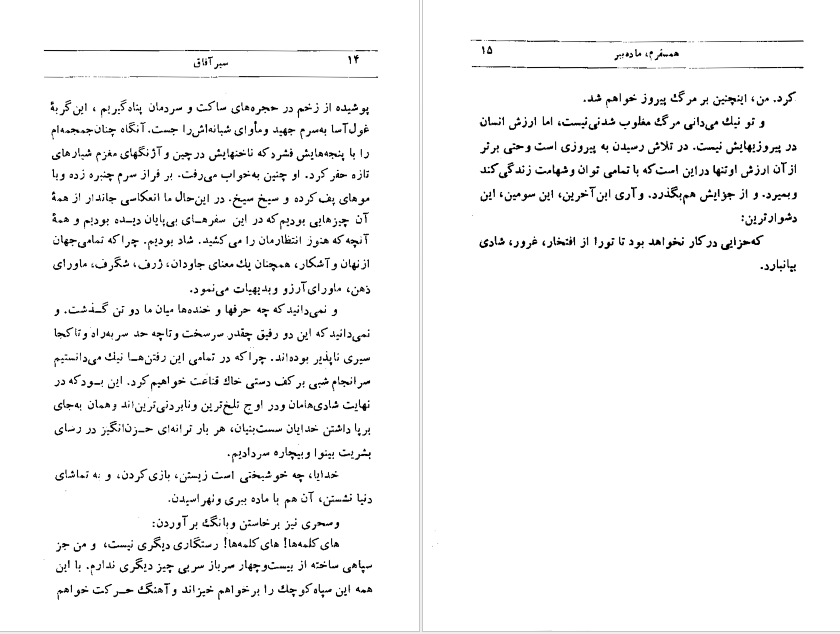 ۱۴
سیر آفاق
پوشیده از زخم در حجره‌های ساکت و سردمان پناه‌گیریم ، این گربهٔ
غول‌آسا به‌سرم جهید و مأوای شبانه‌اش را جست. آنگاه چنان جمجمه‌ام
را با پنجه‌هایش فشرد که ناخنهایش در چین و آژنگهای مغزم شیارهای
تازه حفر کرد. او چنین به‌خواب می‌رفت. بر فراز سرم چنبره زده و با
موهای پف کرده و سیخ سیخ. در این‌حال ما انعکاسی جاندار از همهٔ
آن چیزهایی بودیم که در این سفرهای بی‌پایان دیده بودیم و همهٔ
آنچه که هنوز انتظارمان را می‌کشید. شاد بودیم. چرا که تمامی جهان
از نهان و آشکار، همچنان یك معنای جاودان، ژرف، شگرف، ماورای
ذهن، ماورای آرزو و بدیهیات می‌نمود.
و نمی‌دانید که چه حرفها و خنده‌ها میان ما دو تن گذشت. و
نمی‌دانید که این دو رفیق چقدر سرسخت و تا چه حد سر به‌راه و تا کجا
سیری ناپذیر بوده‌اند. چرا که در تمامی این رفتن‌ها نیك می‌دانستیم
سرانجام شبی بر کف دستی خاك قناعت خواهیم کرد. این بود که در
نهایت شادی‌هامان و در اوج تلخ‌ترین و نابردنی‌ترین‌اند و همان به‌جای
برپا داشتن خدایان سست‌بنیان، هر بار ترانه‌ای حزن‌انگیز در رسای
بشریت بینوا و بیچاره سردادیم.
خدایا، چه خوشبختی است زیستن، بازی کردن، و به تماشای
دنیا نشستن، آن هم با ماده ببری و نهراسیدن.
و سحری نیز برخاستن و بانگ بر آوردن:
های کلمه‌ها! های کلمه‌ها! رستگاری دیگری نیست، و من جز
سپاهی ساخته از بیست‌و‌چهار سرباز سربی چیز دیگری ندارم. با این
همه این سپاه کوچك را برخواهم خیزاند و آهنگ حرکت خواهم
۱۵
همسفرم، ماده‌ببر
کرد. من، اینچنین بر مرگ پیروز خواهم شد.
و تو نیك می‌دانی مرگ مغلوب شدنی نیست، اما ارزش انسان
در پیروزیهایش نیست. در تلاش رسیدن به پیروزی است و حتی برتر
از آن ارزش او تنها در این است که با تمامی توان و شهامت زندگی کند
و بمیرد. و از جزایش هم بگذرد. و آری این آخرین، این سومین، این
دشوارترین:
که جزایی در کار نخواهد بود تا تو را از افتخار، غرور، شادی
بیانبارد.